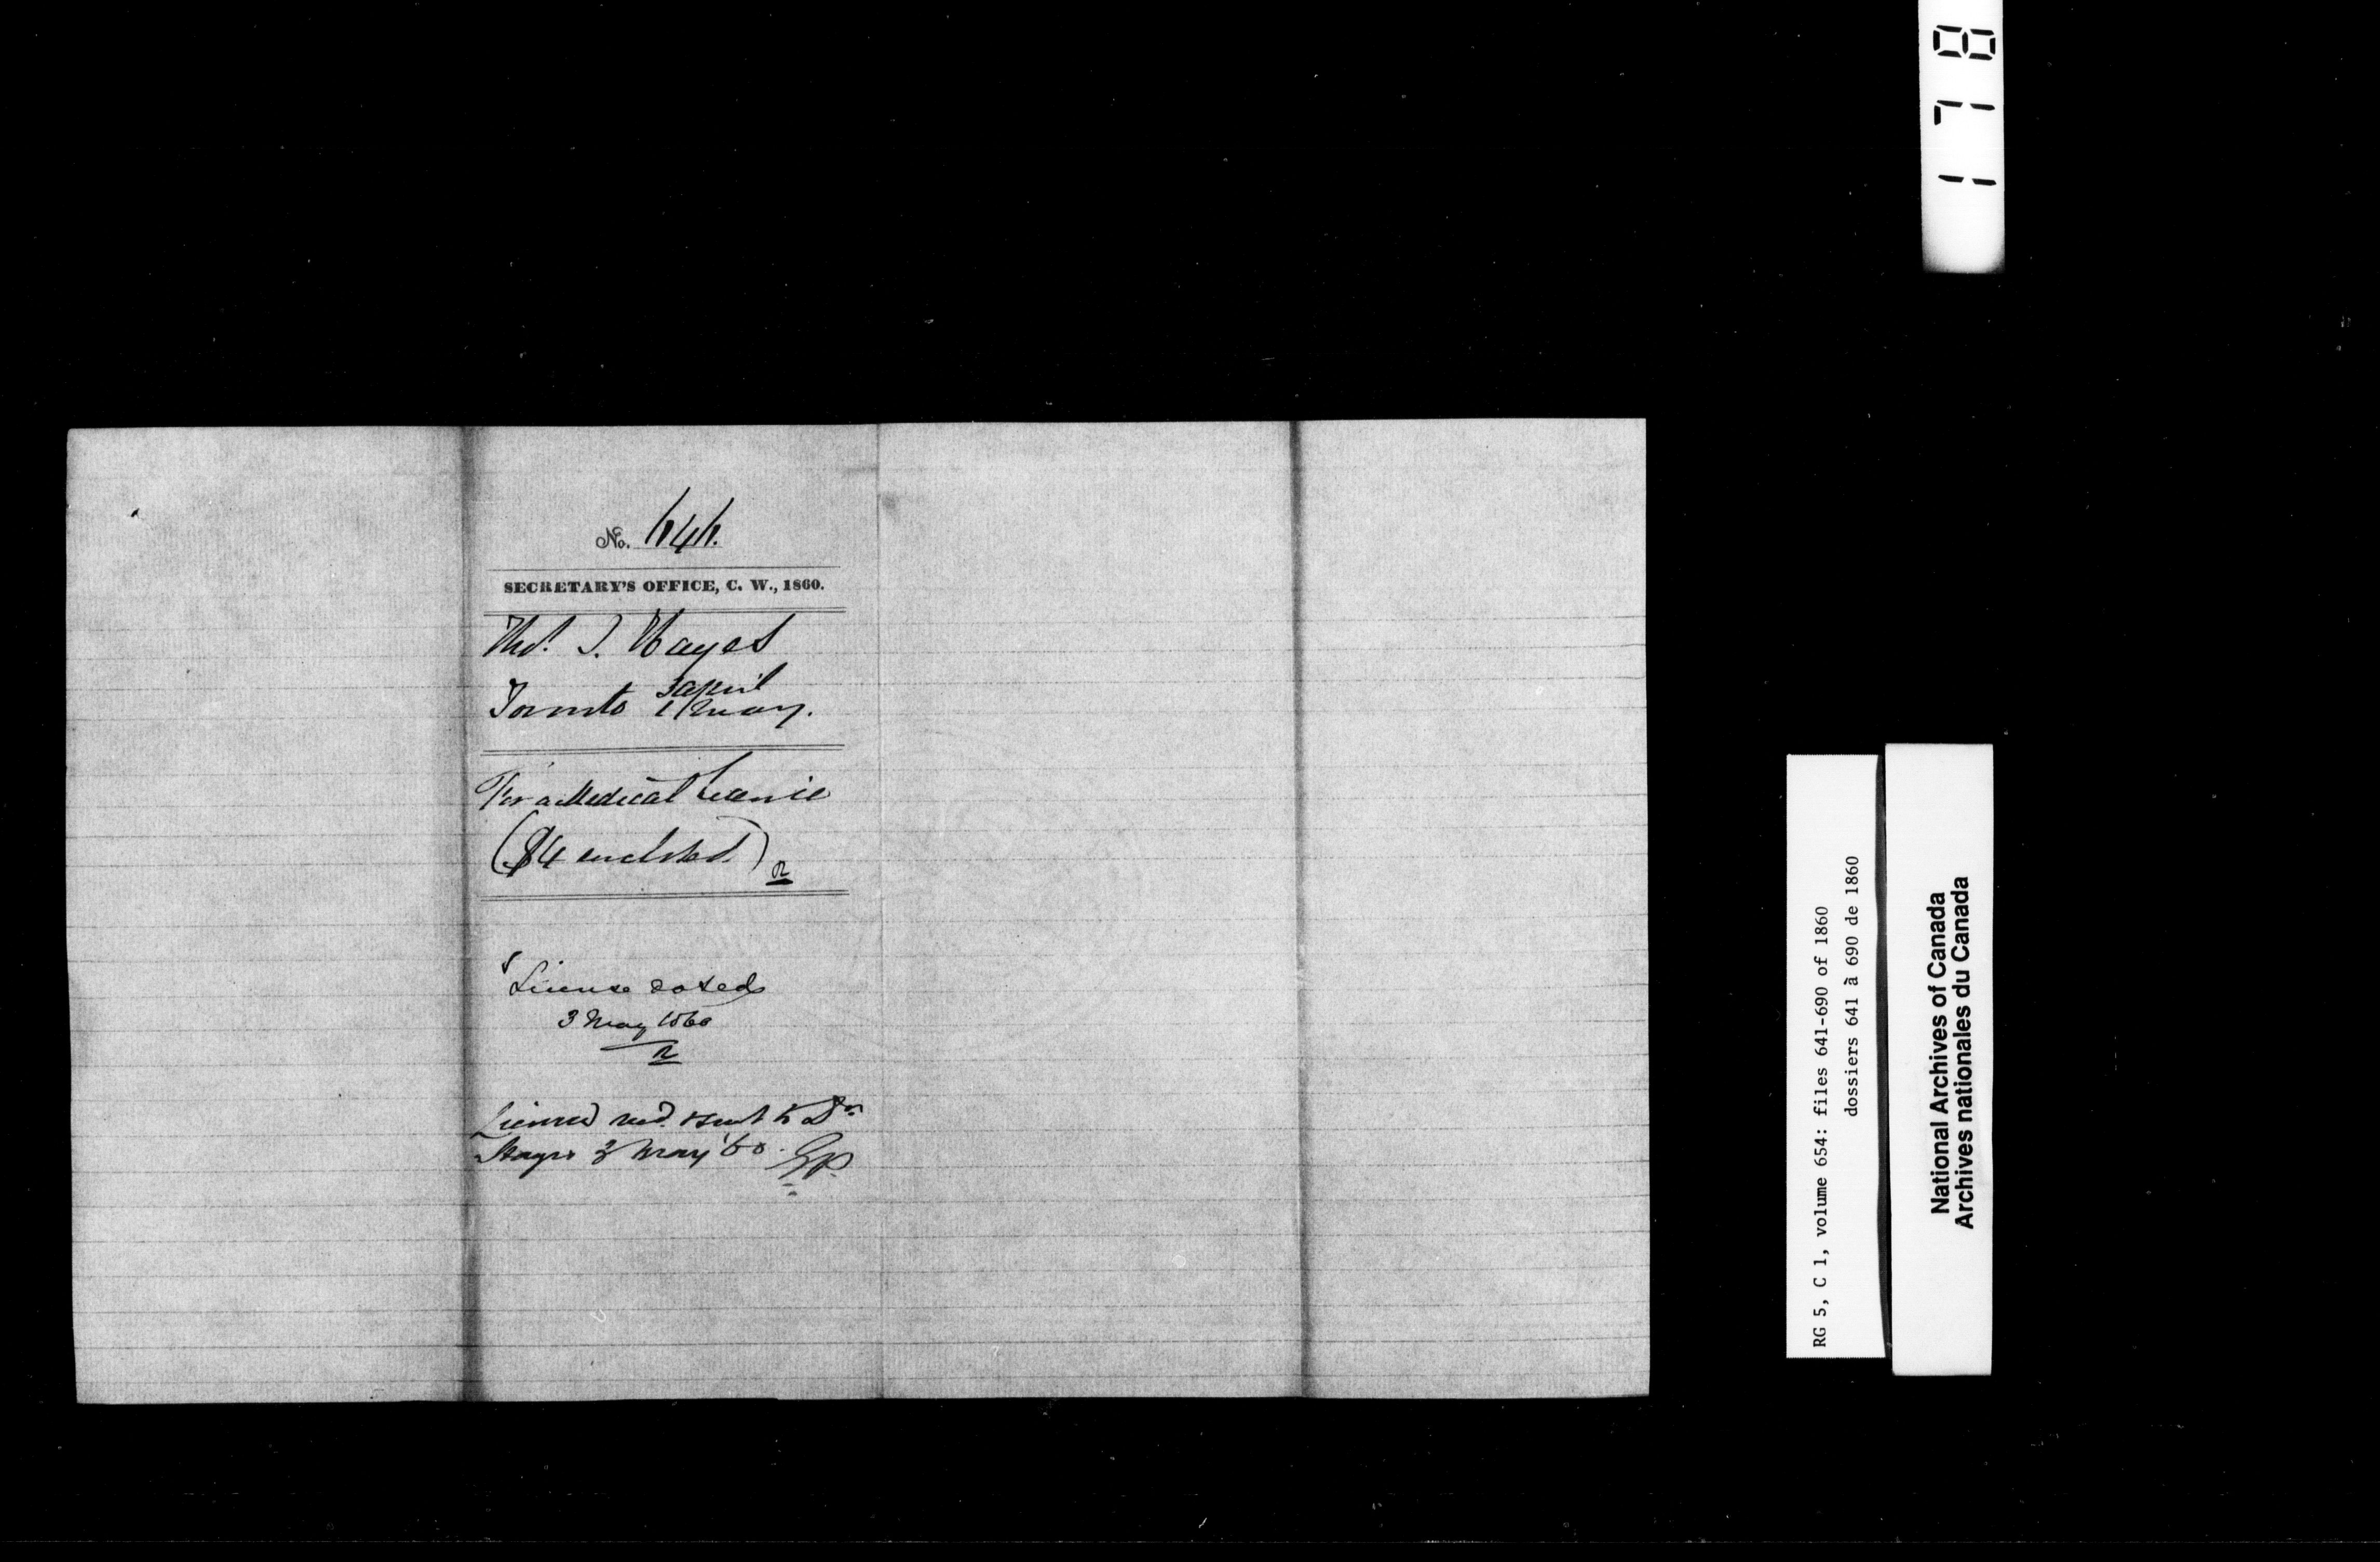 178
No. 646.
SECRETARY'S OFFICE, C. W., 1860.
Thos. J. Hayes
April
Toronto 1 May.
For a Medical License
($4 enclosed)
License dated
3 May 1860
License recd. & sent to Dr
Hayes 3 May '60. GP
RG 5, C 1, volume 654: files 641-690 of 1860
dossiers 641 à 690 de 1860
National Archives of Canada
Archives nationales du Canada